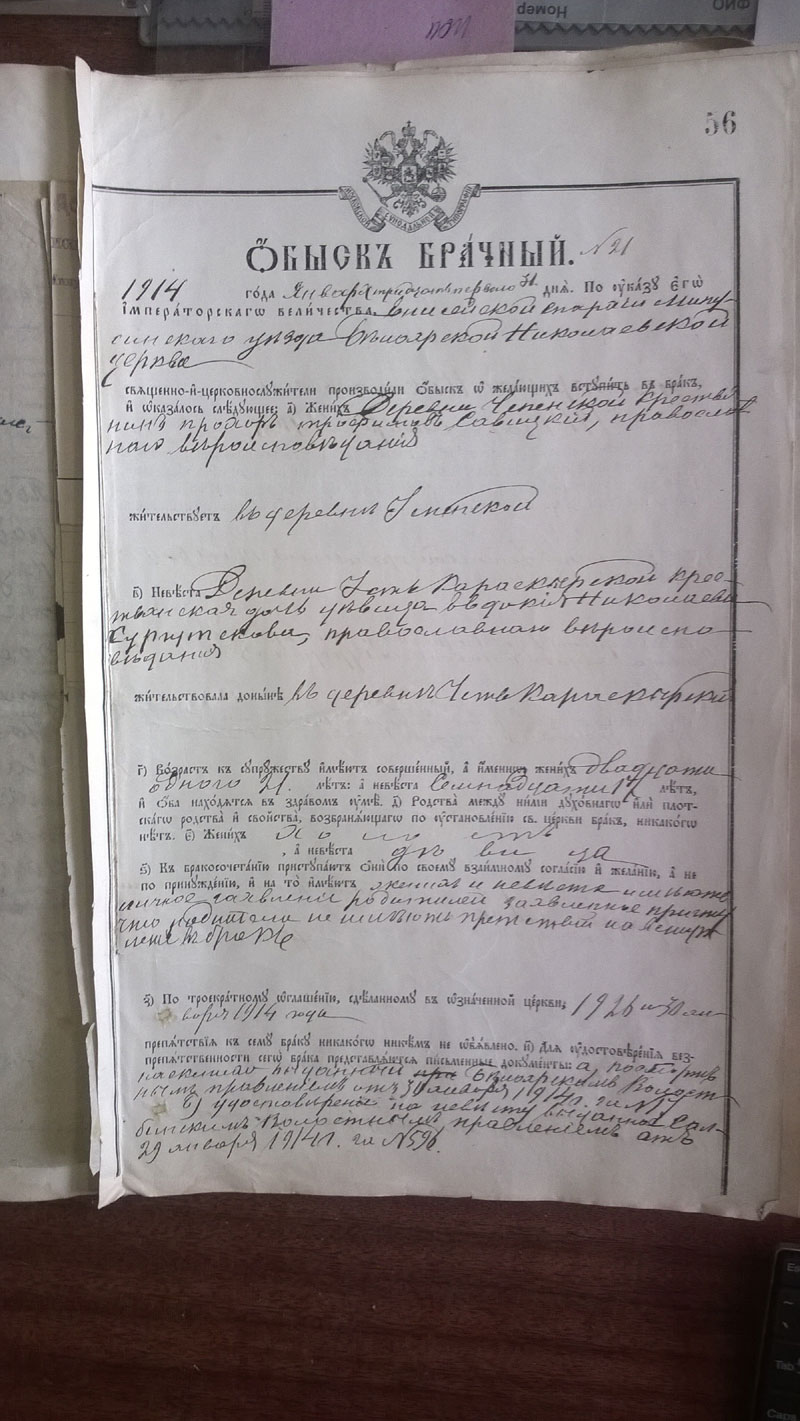 ФИО
Номер
56
МОСКОВСКОЙ СУНОДАЛЬНОЙ ТИПОГРАФІИ
Ѻ҆БЫСКЪ БРА́ЧНЫЙ. N 21
1914 го́да Января тридцать перваго 31 днѧ̀. По ᲂу҆ка́зу Є҆гѡ̀
І҆мпера́торскагѡ вели́чества, Енисейской епархіи Мину-
синскаго уѣзда Бѣлоярской Николаевской
церкви
свѧще́нно-и҆-церковнослужи́тели производи́ли ѻ҆́быскъ ѡ҆ жела́ющихъ вступи́ть въ бра́къ,
и҆ ѡ҆каза́лось слѣ́дующее: а҃) Жени́хъ Деревни крестья-
нинъ Прохоръ Трофимовъ Савицкій, православ
наго вѣроисповѣданія
жи́тельствуетъ въ деревнѣ
в҃) Невѣ́ста Деревни Усть Караскырской крес-
тьянская дочь дѣвица Евдокія Николаева
православнаго вѣроиспо-
вѣданія
жи́тельствовала доны́нѣ въ деревнѣ Усть Караскырской
г҃) Во́зрастъ къ супру́жеству и҆мѣ́ютъ соверше́нный, а҆ и҆́меннѡ жени́хъ двадцати
одного 21. лѣ́тъ: а҆ невѣ́ста Семнадцати 17 лѣ́тъ,
и҆ ѻ҆́ба нахо́дѧтсѧ въ здра́вомъ ᲂу҆мѣ̀. д҃) Родства̀ между ни́ми дꙋхо́внагѡ и҆лѝ пло́т-
скагѡ родства̀ и҆ сво́йства, возбранѧ́ющагѡ по ᲂу҆становле́нію св. це́ркви бра́къ, никако́гѡ
нѣ́тъ. є҃) Жени́хъ Холостъ
, а҆ невѣ́ста дѣвица
ѕ҃) Къ бракосочета́нію приступа́ютъ ѻ҆нѝ по своемꙋ̀ взаи́мному согла́сію и҆ жела́нію, а҆ не
по принужде́нію, и҆ на то̀ и҆мѣ́ютъ женихъ и невѣста имѣютъ
личное заявленіе родителей
что родители не имѣютъ препятствій на вступ
леніе въ бракъ
з҃) По троекра́тному ѡ҆глаше́нію, сдѣ́ланному въ ѡ҆зна́ченной це́ркви, 19 26 и 30 ян-
варя 1914 года
препѧ́тствіѧ къ сему̀ бра́ку никако́гѡ никѣ́мъ не ѡ҆б̾ѧ́влено. и҃) Для ᲂу҆достовѣ́ренїѧ без-
препѧ́тственности сегѡ̀ бра́ка представлѧ́ютсѧ пи́сьменные докуме́нты: а,
выданный Бѣлоярскимъ Волост
нымъ правленіемъ отъ 30 января 1914 г. за №
б) удостовѣреніе на невѣсту выданное
Волостнымъ правленіемъ отъ
29 января 1914 г. за № 596.
Esc
Tab
Caps